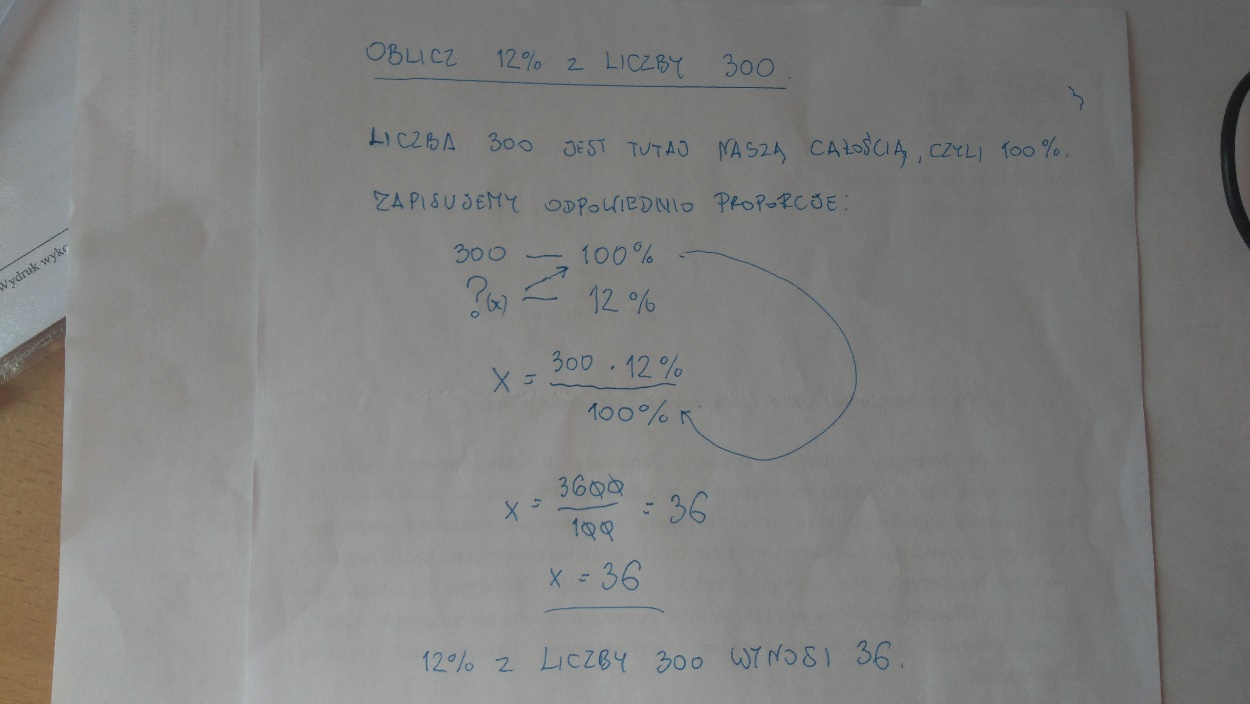 OBLICZ 12% z LICZBY 300.
LICZBA 300 JEST TUTAJ NASZĄ CAŁOŚCIĄ, CZYLI 100%.
ZAPISUJEMY ODPOWIEDNIO PROPORCJE:
300 — 100%
?(x) — 12%
x = 300 · 12% / 100%
x = 3600 / 100 = 36
x = 36
12% z LICZBY 300 WYNOSI 36.
Wydruk wyko